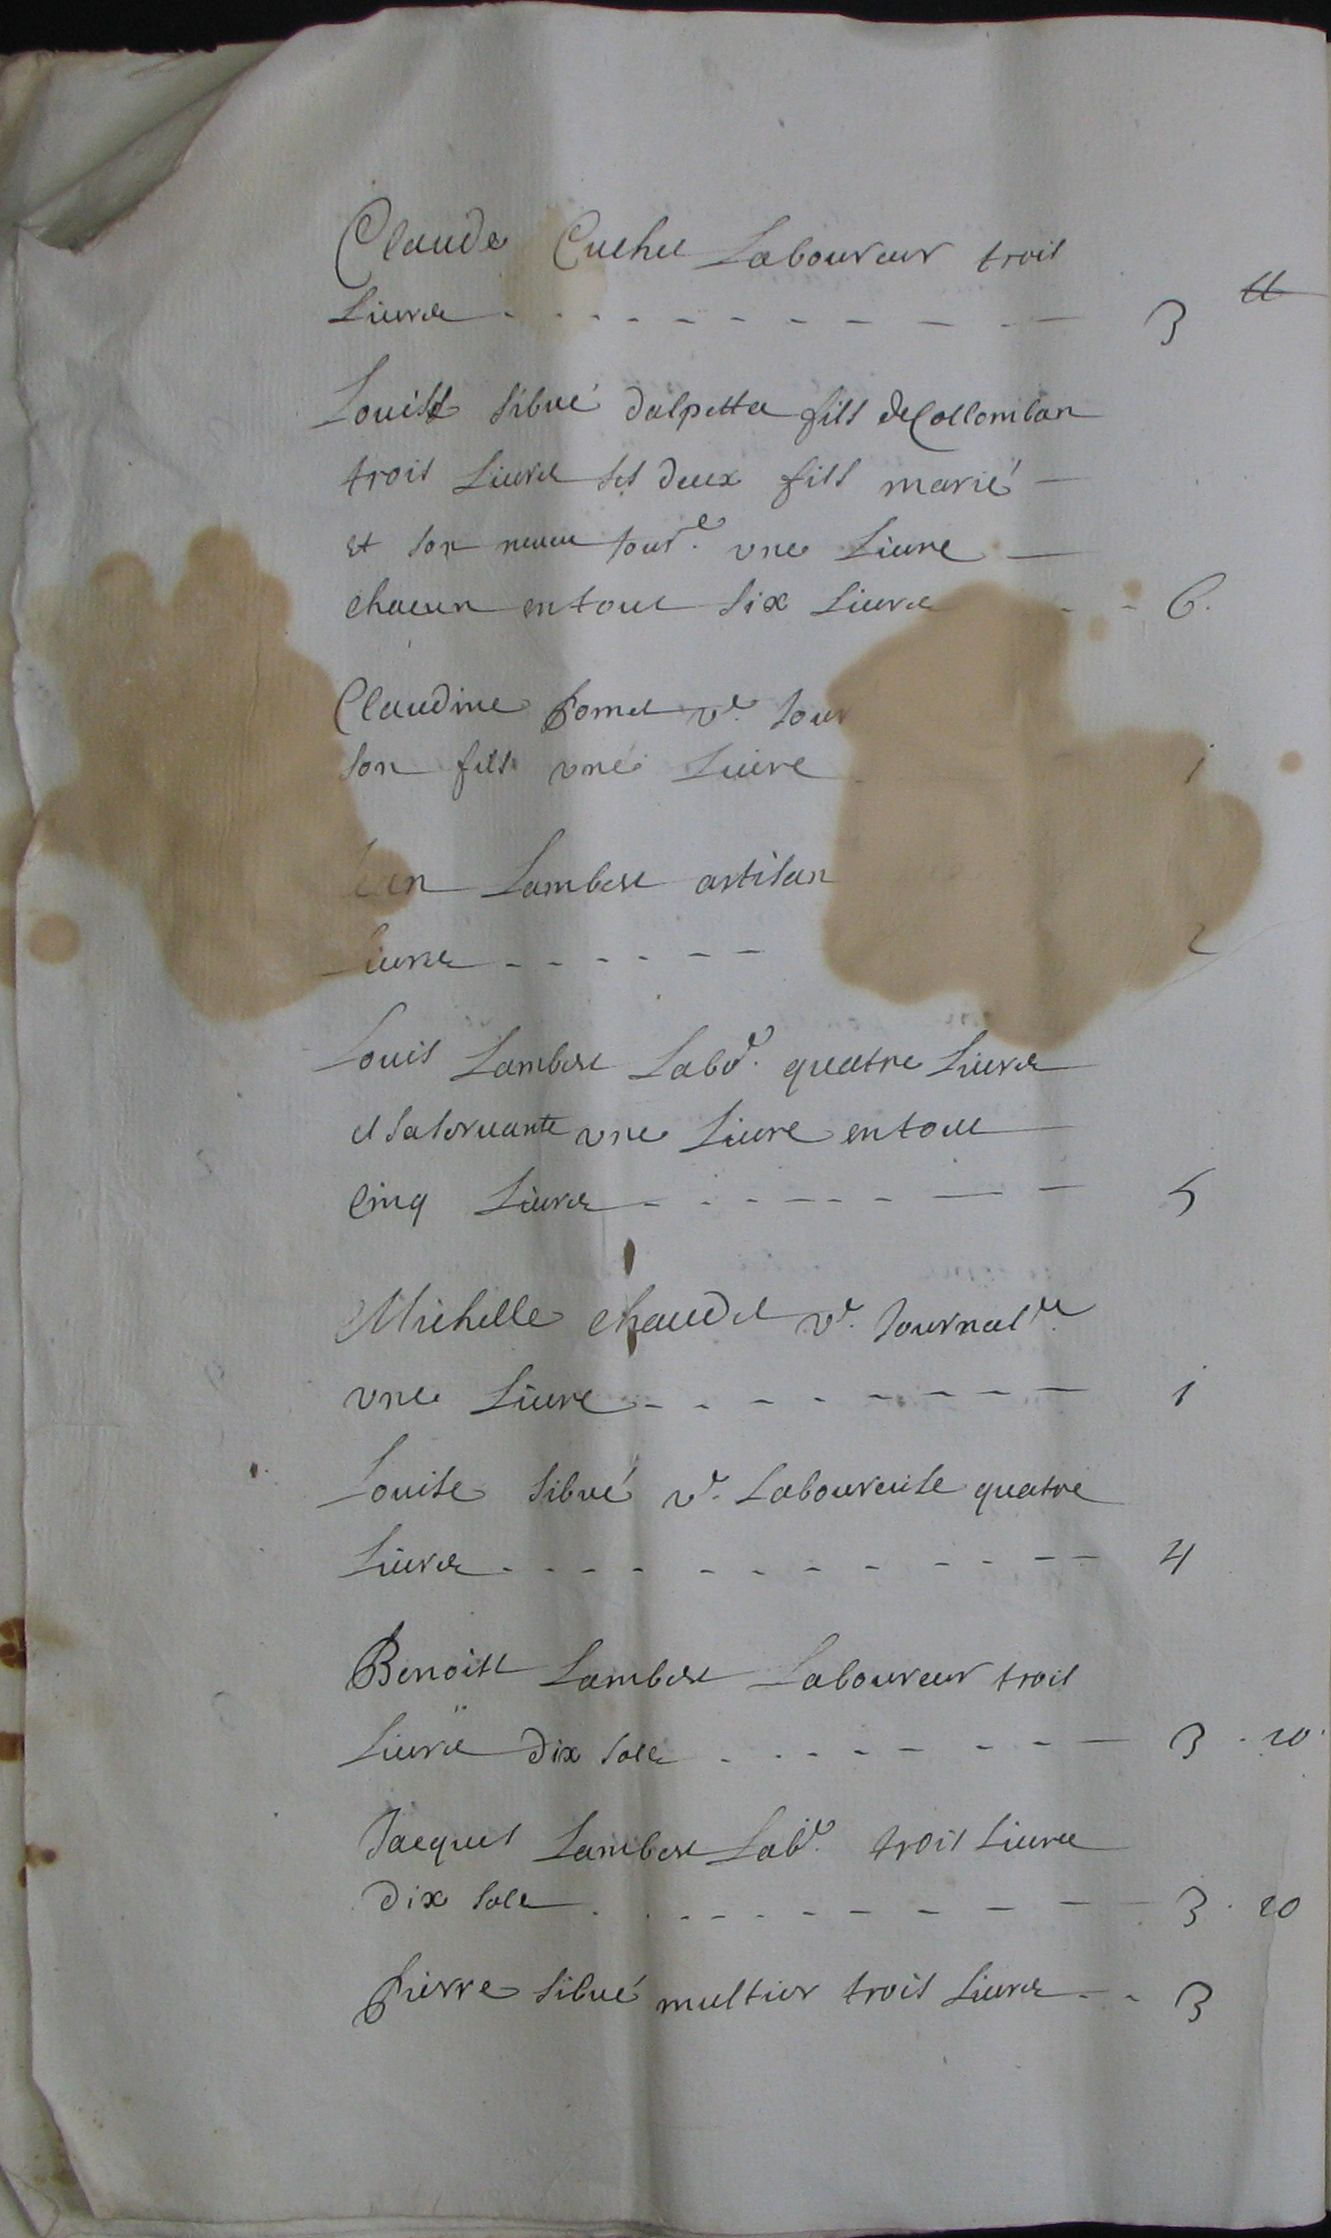 Claude Cuchet Laboureur trois
Livres - - - - - - - - - 3 ₶
Louis Sibué dalpetta fils de Collomban
trois Livres ses deux fils marié -
et son neveu Jour.e une Livre -
chacun en tout six Livres - - 6.
Claudine Pomet v.e Jour
son fils une Livre 1
Lambert artisan
Livres - - - - - - 2
Louis Lambert Lab.r quatre Livres
et sa servante une Livre en tout
Cinq Livres - - - - - - - - 5
Michelle chaudet v.e Journal.re
une Livre - - - - - - - - 1
Louise Sibué v.e Laboureuse quatre
Livres - - - - - - - - - - 4
Benoitt Lambert Laboureur trois
Livres dix sols - - - - - - - 3 . 10
Jacques Lambert Lab.r trois Livres
dix sols - - - - - - - - - 3 . 10
Pierre Sibué multier trois Livres - - 3